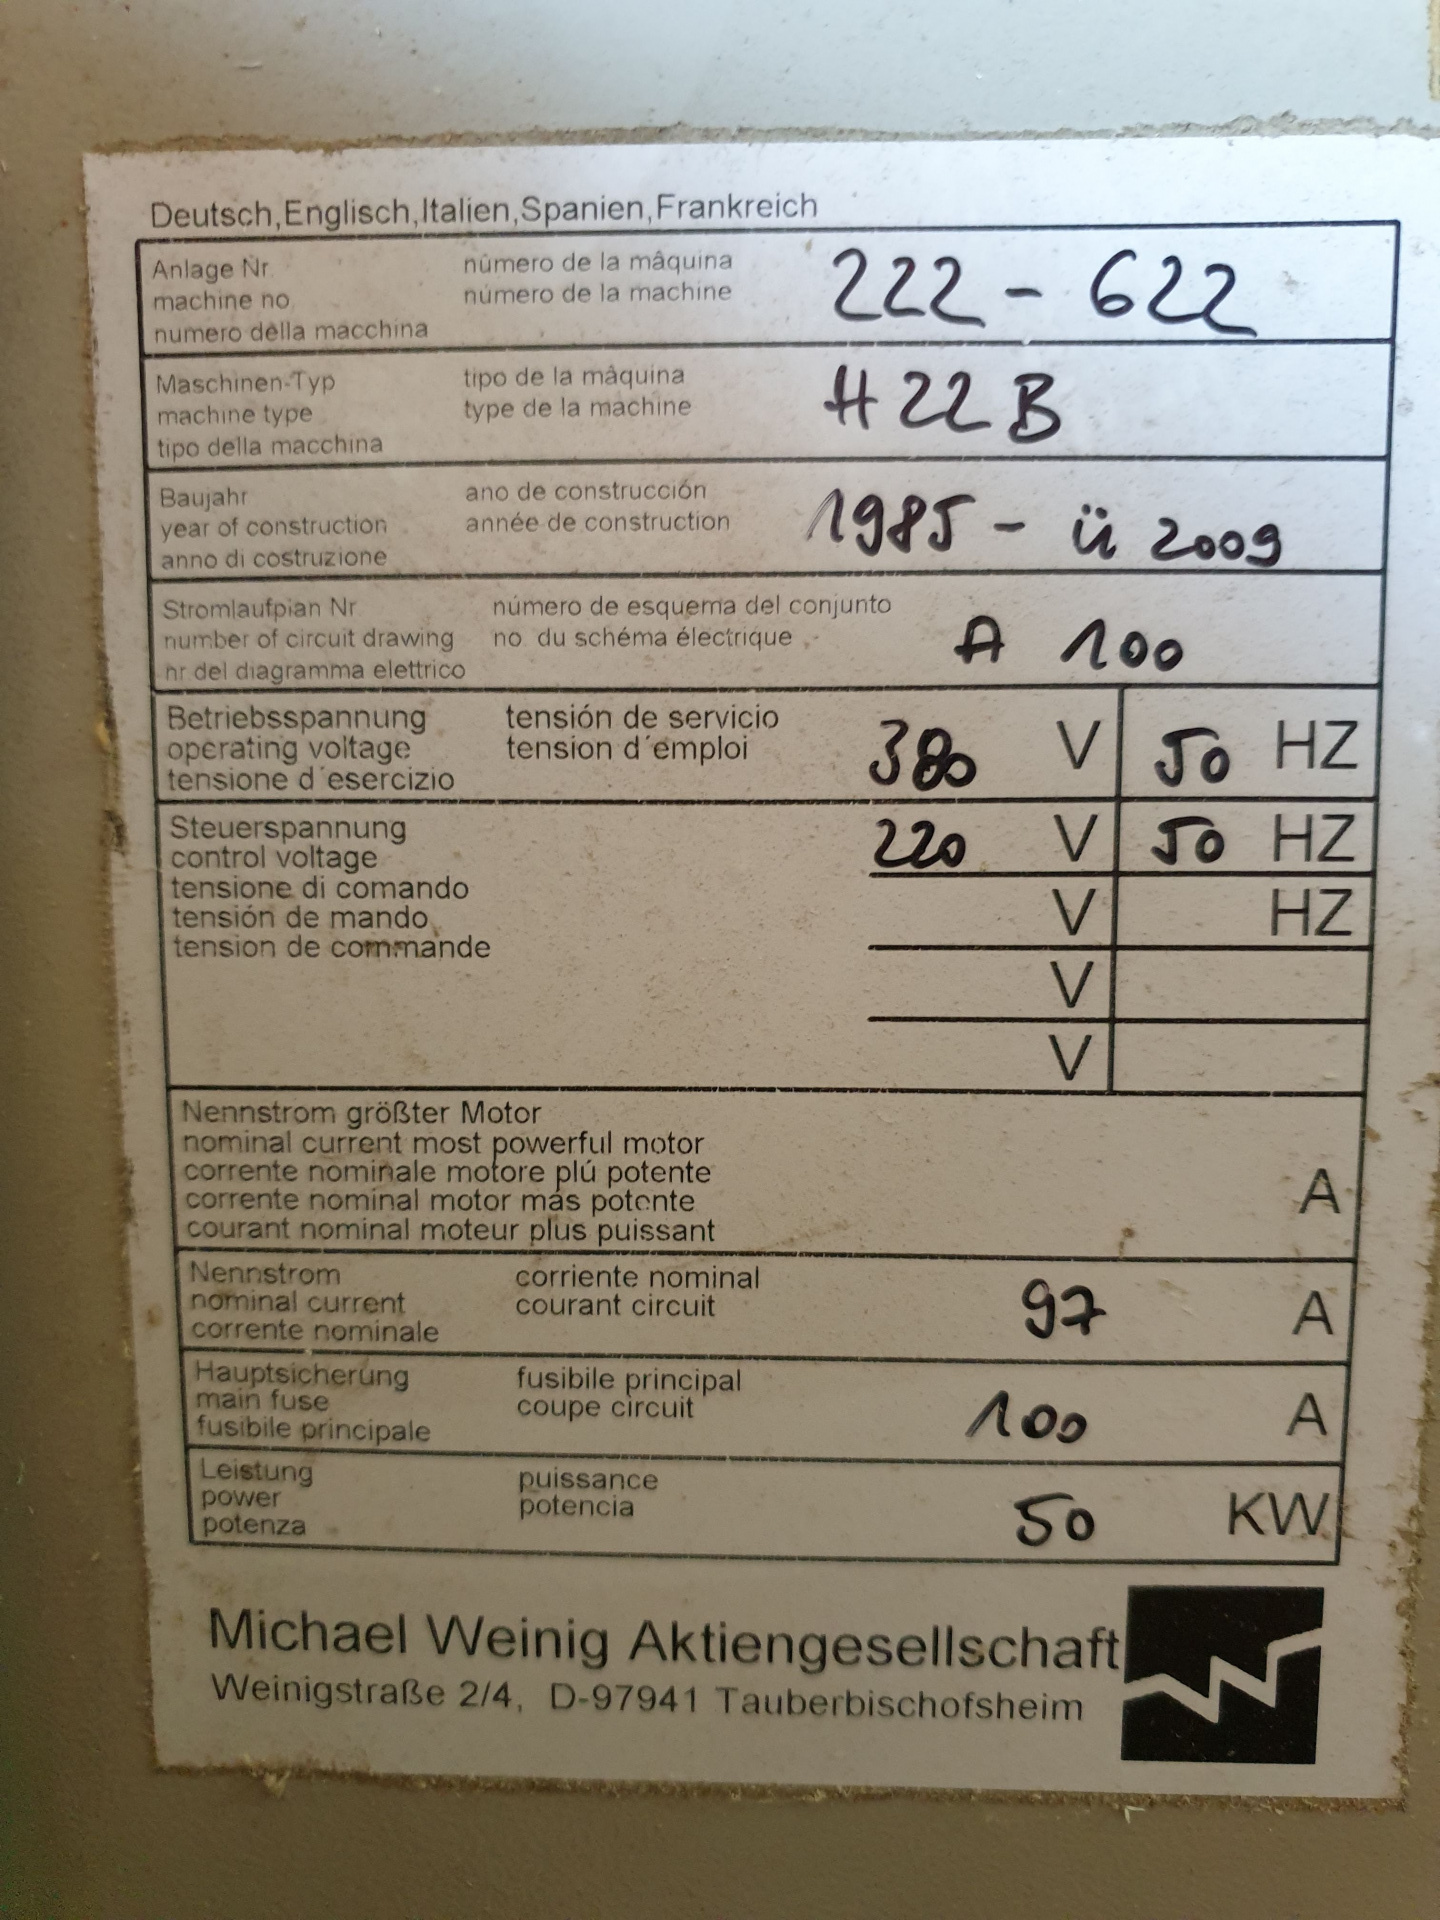 Deutsch,Englisch,Italien,Spanien,Frankreich
Anlage Nr número de la mâquina 222 - 622
machine no número de la machine
numero della macchina
Maschinen-Typ tipo de la mâquina H 22 B
machine type type de la machine
tipo della macchina
Baujahr ano de construcción 1985 - ü 2009
year of construction année de construction
anno di costruzione
Stromlaufplan Nr número de esquema del conjunto A 100
number of circuit drawing no. du schéma électrique
nr del diagramma elettrico
Betriebsspannung tensión de servicio 380 V 50 HZ
operating voltage tension d´emploi
tensione d´esercizio
Steuerspannung 220 V 50 HZ
control voltage
tensione di comando V HZ
tensión de mando
tension de commande
V
V
Nennstrom größter Motor
nominal current most powerful motor
corrente nominale motore plú potente A
corrente nominal motor más potente
courant nominal moteur plus puissant
Nennstrom corriente nominal 97 A
nominal current courant circuit
corrente nominale
Hauptsicherung fusibile principal 100 A
main fuse coupe circuit
fusibile principale
Leistung puissance 50 KW
power potencia
potenza
Michael Weinig Aktiengesellschaft
Weinigstraße 2/4, D-97941 Tauberbischofsheim